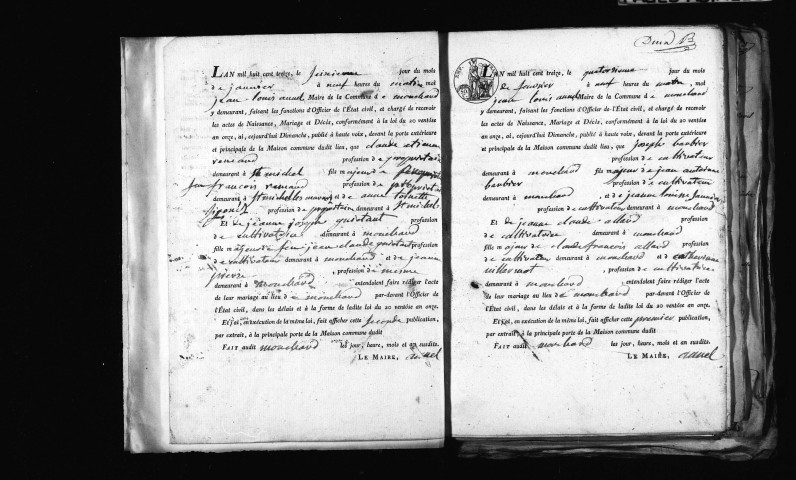 LAN mil huit cent treize, le jour du mois
de janvier à neuf heures du matin moi
jean louis Maire de la Commune de mouchard
y demeurant, faisant les fonctions d'Officier de l'État civil, et chargé de recevoir
les actes de Naissance, Mariage et Décès, conformément à la loi du 20 ventôse
an onze, ai, cejourd'hui Dimanche, publié à haute voix, devant la porte extérieure
et principale de la Maison commune dudit lieu, que claude etienne
renaud profession de propriétaire
demeurant à st michel fils majeur de
feu francois renaud profession de propriétaire
demeurant à st michel et de anne
profession de demeurant à st michel
Et de jeanne joseph profession
de cultivatrice demeurant à mouchard
fille majeure de feu jean claude profession
de cultivateur demeurant à mouchard et de jeanne
pierre, profession de meme
demeurant à mouchard, entendoient faire rédiger l'acte
de leur mariage au lieu de mouchard par-devant l'Officier de
l'État civil, dans les délais et à la forme de ladite loi du 20 ventôse an onze.
Et j'ai, en exécution de la même loi, fait afficher cette seconde publication,
par extrait, à la principale porte de la Maison commune dudit
FAIT audit mouchard les jour, heure, mois et an susdits.
LE MAIRE,
LAN mil huit cent treize, le quatorzieme jour du mois
de janvier à neuf heures du matin, moi
jean louis Maire de la Commune de mouchard
y demeurant, faisant les fonctions d'Officier de l'État civil, et chargé de recevoir
les actes de Naissance, Mariage et Décès, conformément à la loi du 20 ventôse
an onze, ai, cejourd'hui Dimanche, publié à haute voix, devant la porte extérieure
et principale de la Maison commune dudit lieu, que joseph barbier
profession de cultivateur
demeurant à mouchard fils majeur de jean antoine
barbier profession de cultivateur
demeurant à mouchard, et de jeanne louise
profession de cultivateur demeurant à mouchard
Et de jeanne claude allard profession
de cultivatrice demeurant à mouchard
fille majeure de claude francois allard profession
de cultivateur demeurant à mouchard et catherine
, profession de cultivatrice
demeurant à mouchard, entendoient faire rédiger l'acte
de leur mariage au lieu de mouchard par-devant l'Officier de
l'État civil, dans les délais et à la forme de ladite loi du 20 ventôse an onze.
Et j'ai, en exécution de la même loi, fait afficher cette premier publication,
par extrait, à la principale porte de la Maison commune dudit
FAIT audit mouchard les jour, heure, mois et an susdits.
LE MAIRE,